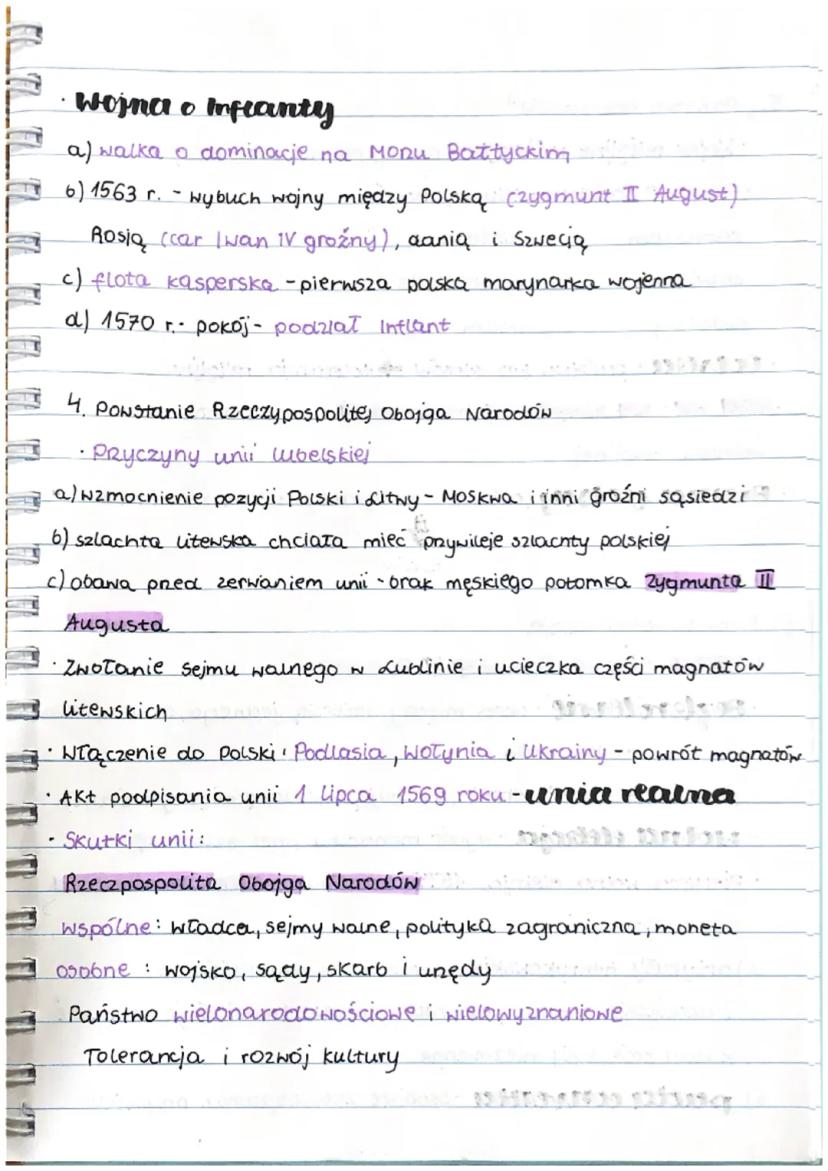 · Wojna o Inflanty
a) walka o dominacje na Morzu Bałtyckim
b) 1563 r. - wybuch wojny między Polską (Zygmunt II August)
Rosją (car Iwan IV groźny), danią i Szwecją
c) flota kasperska - pierwsza polska marynarka wojenna
d) 1570 r. - pokój - podział Inflant
4. Powstanie Rzeczypospolitej Obojga Narodów
· Przyczyny unii lubelskiej
a) wzmocnienie pozycji Polski i Litwy - Moskwa i inni groźni sąsiedzi
b) szlachta litewska chciała mieć przywileje szlachty polskiej
c) obawa przed zerwaniem unii - brak męskiego potomka Zygmunta II
Augusta
· Zwołanie sejmu walnego w Lublinie i ucieczka części magnatów
litewskich
· Włączenie do Polski: Podlasia, Wołynia i Ukrainy - powrót magnatów
· Akt podpisania unii 1 lipca 1569 roku - unia realna
· Skutki unii:
Rzeczpospolita Obojga Narodów
wspólne: władca, sejmy walne, polityka zagraniczna, moneta
osobne: wojsko, sądy, skarb i urzędy
Państwo wielonarodowościowe i wielowyznaniowe
Tolerancja i rozwój kultury